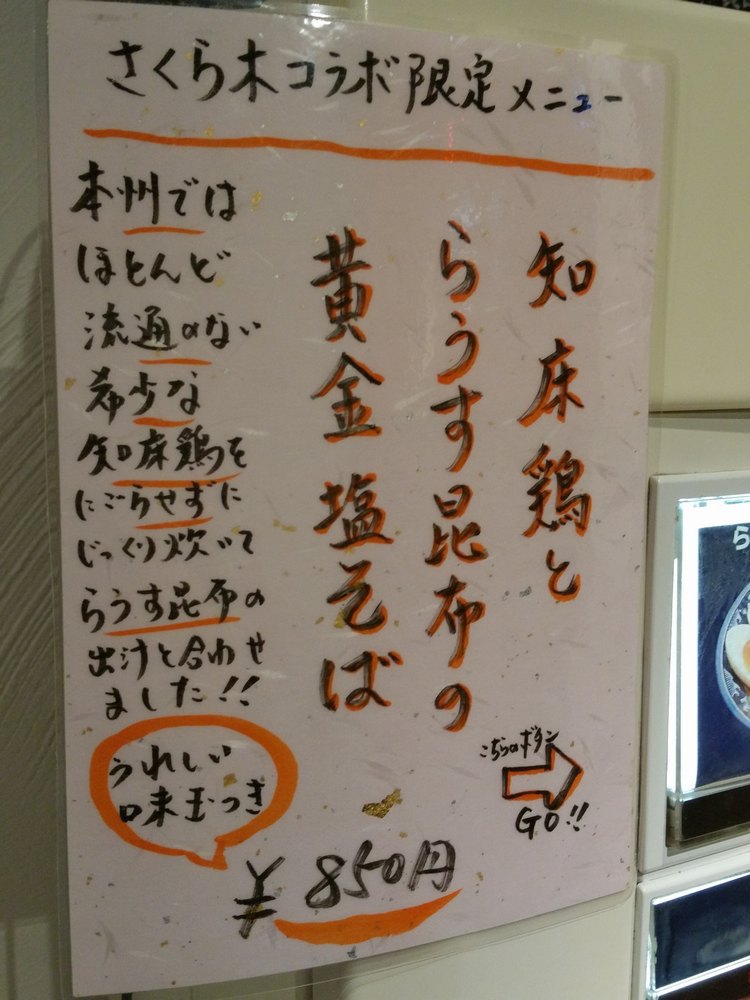 さくら木コラボ限定メニュー
知床鶏と
らうす昆布の
黄金塩そば
本州では
ほとんど
流通のない
希少な
知床鶏を
にごらせずに
じっくり炊いて
らうす昆布の
出汁と合わせ
ました!!
うれしい
味玉つき
こちらのボタン
GO!!
¥850円
ら